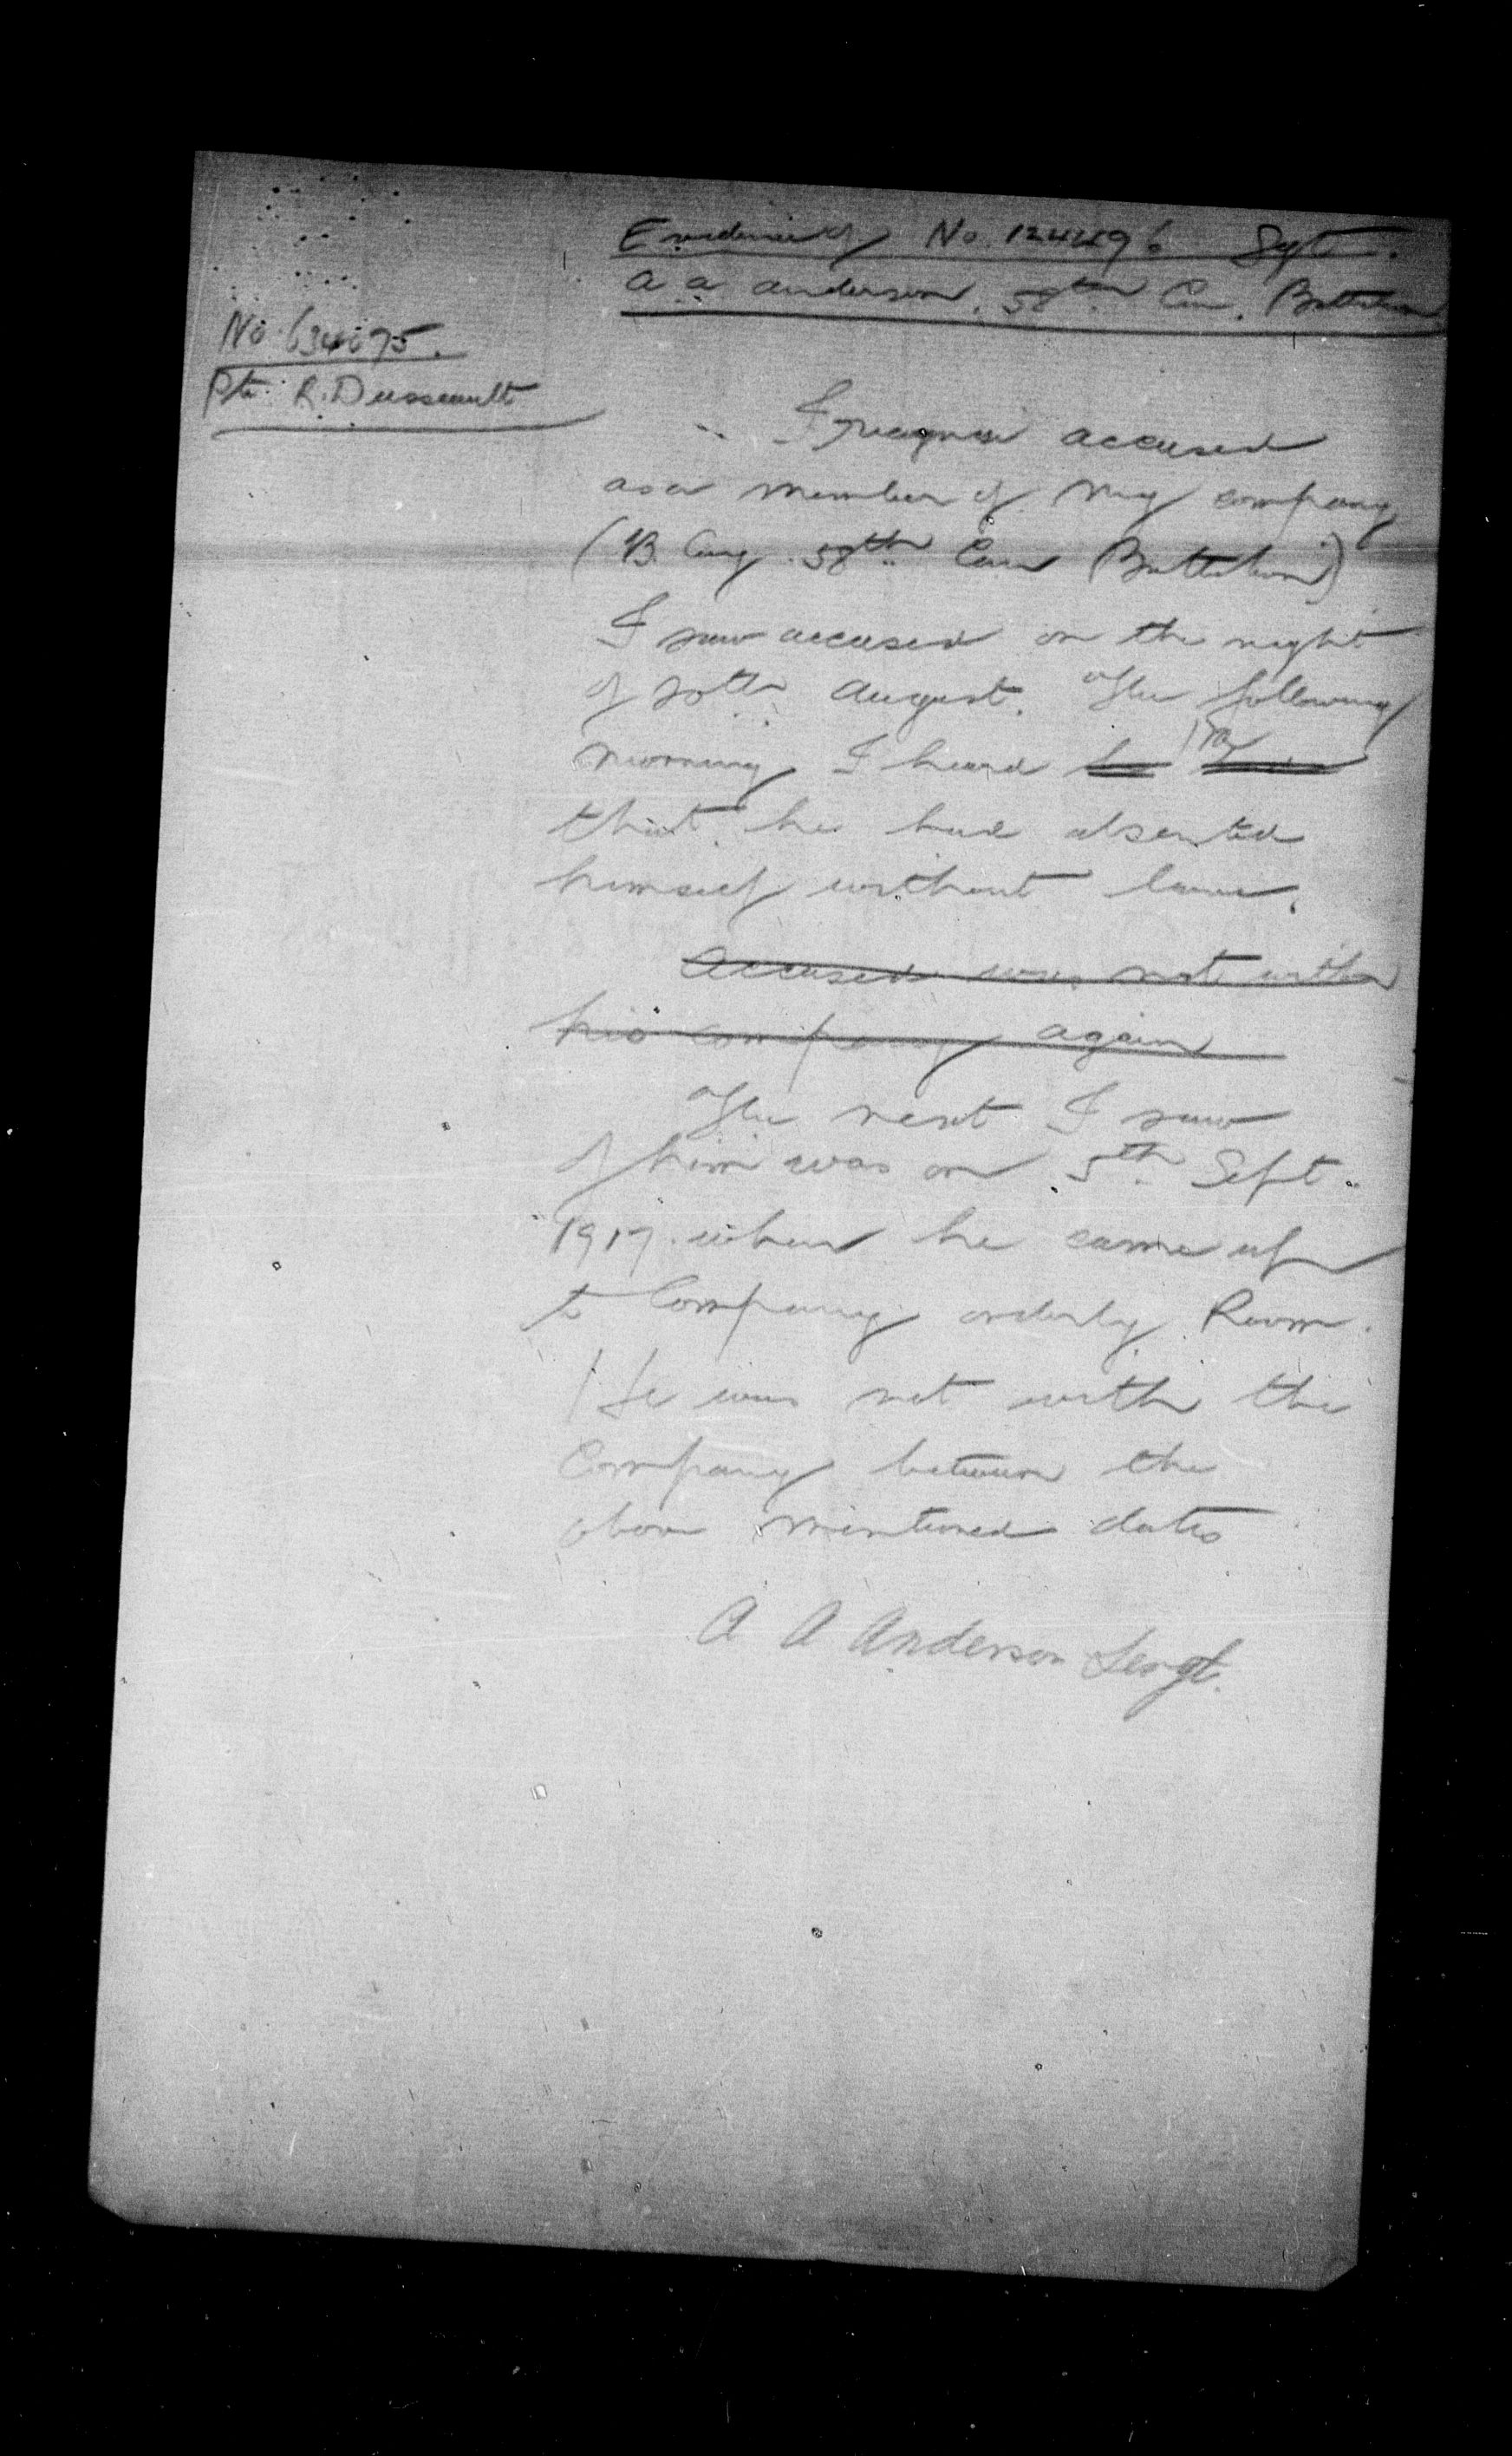 Evidence of No. 124496 Sgt.
A A Anderson. 58th Can. Battalion
No 634075.
Pte. R. Dussault
I recognise accused
as a member of my company
(B. Coy. 58th Can Battalion)
I saw accused on the night
of 20th August. The following
morning I heard
that he had absented
himself without leave.
Accused was not with
his company again
The next I saw
of him was on 5th Sept.
1917. when he came up
to Company orderly Room.
He was not with the
Company between the
above mentioned dates
A A Anderson Sergt.